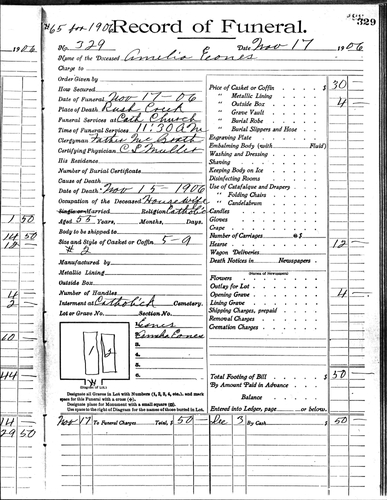 #65 for 1906
329
Record of Funeral.
1906
No. 329
Date Nov 17 1906
Name of the Deceased Amelia Eones
Charge to
Order Given by
How Secured
Date of Funeral Nov 17-06
Place of Death Rush Creek
Funeral Services at Cath Church
Time of Funeral Services 11:30 A M
Clergyman Father Mc Booth
Certifying Physician C S Mullet
His Residence
Number of Burial Certificate
Cause of Death
Date of Death Nov 15-1906
Occupation of the Deceased Housewife
Single or Married Religion Catholic
Aged 55 Years, Months, Days.
Body to be shipped to
Size and Style of Casket or Coffin 5-9
# 2
Manufactured by
Metallic Lining
Outside Box
Number of Handles
Interment at Catholick Cemetery.
Lot or Grave No. Section No.
1 2
1. Eones
2. Eones
3.
4.
5.
DIAGRAM OF LOT
Designate all Graves in Lot with Numbers (1, 2, 3, 4, etc.), and mark space for this Funeral with a cross (+).
Designate place for Monument with a small square (□).
Use space to the right of Diagram for the names of those buried in Lot.
Price of Casket or Coffin $ 30
" Metallic Lining
" Outside Box 4
" Grave Vault
" Burial Robe
" Burial Slippers and Hose
Engraving Plate
Embalming Body (with Fluid)
Washing and Dressing
Shaving
Keeping Body on Ice
Disinfecting Rooms
Use of Catafalque and Drapery
" Folding Chairs
" Candelabrum
Candles
Gloves
Crape
Number of Carriages @ $
Hearse 12
Wagon Deliveries
Death Notices in Newspapers
(Names of Newspapers)
Flowers
Outlay for Lot
Opening Grave 4
Lining Grave
Shipping Charges, prepaid
Removal Charges
Cremation Charges
Total Footing of Bill $ 50
By Amount Paid in Advance
Balance
Entered into Ledger, page or below.
Nov 17 To Funeral Charges Total, $ 50
Dec 3 By Cash $ 50
1 50
14 50
12
4
2
60
44
14
29 50